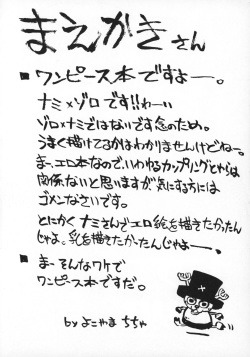 まえがきさん
■ワンピース本ですよー。
ナミ×ゾロです!!わーい
ゾロ×ナミではないです念のため。
うまく描けてるかはわかりませんけどねー。
まー、エロ本なので、いわゆるカップリングとやらは
関係ないと思いますが気にする方には
ゴメンなさいです。
とにかくナミさんでエロ絵を描きたかったん
じゃよ。乳を描きたかったんじゃよー。
■まーそんなワケで
ワンピース本ですだ。
by よこやま ちちゃ